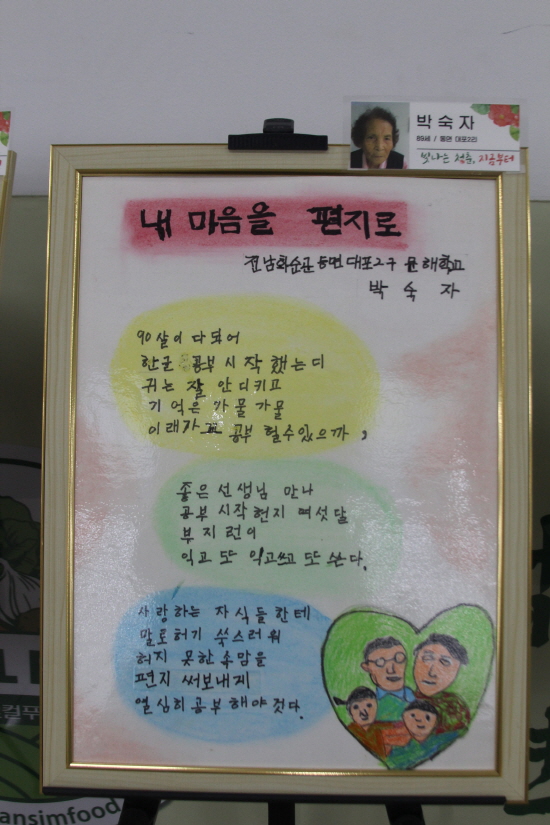 박숙자
89세 / 동면 대포2리
빛나는 청춘, 지금부터
내 마음을 편지로
전남화순군 동면 대포2구 문해학교
박 숙 자
90살이 다 되어
한글 공부 시작했는디
귀는 잘 안 디키고
기억은 가물 가물
이래가꼬 공부 헐수있으까,
좋은 선생님 만나
공부 시작헌지 여섯달
부지런이
익고 또 익고쓰고 또 쓴다.
사랑하는 자식들 한테
말로허기 쑥스러워
허지 못한 속맘을
편지 써보내게
열심히 공부 해야 것다.
ansimfood